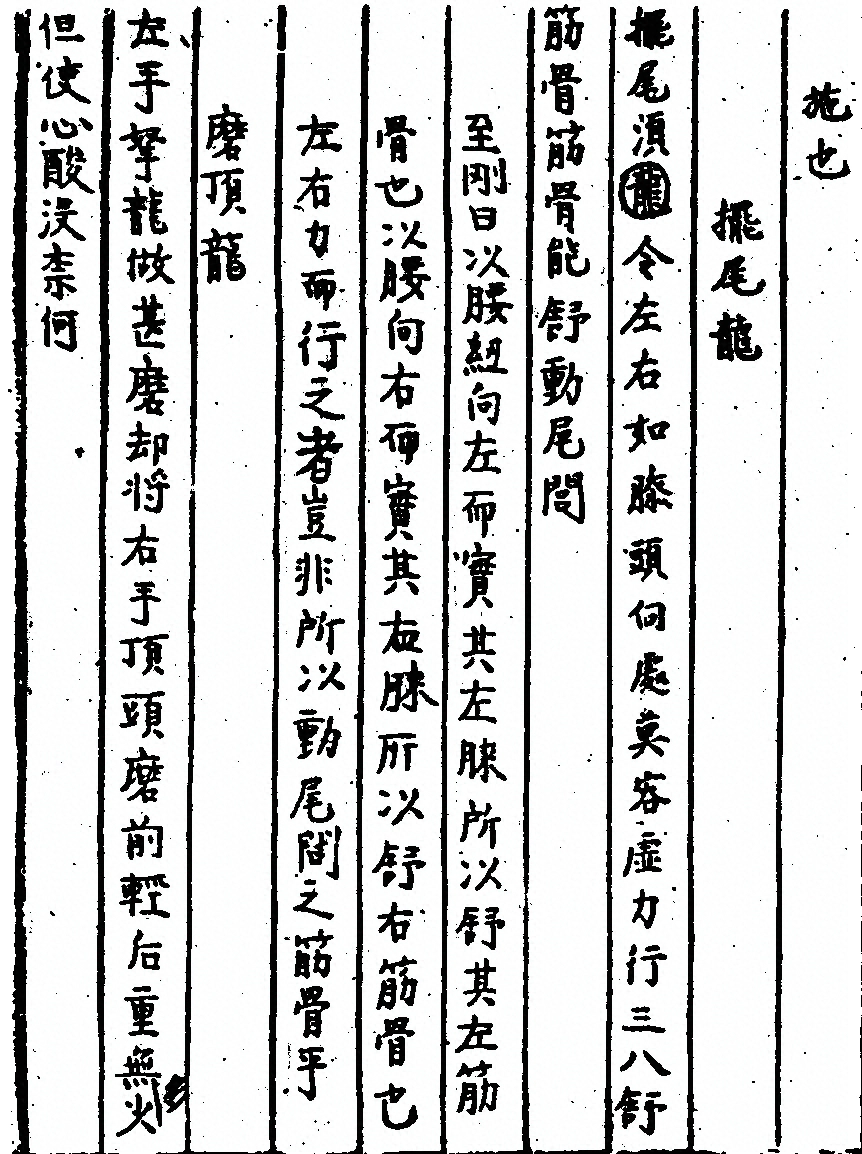 施也
擺尾龍
擺尾須龍令左右如膝頭何處莫容虛力行三八舒
筋骨筋骨能舒動尾閭
至剛曰以腰紐向左而實其左膝所以舒其左筋
骨也以腰向右而實其右膝所以舒右筋骨也
左右力而行之者豈非所以動尾閭之筋骨乎
磨頂龍
左手拏龍做甚磨却将右手頂頭磨前輕后重無火
但使心酸没柰何